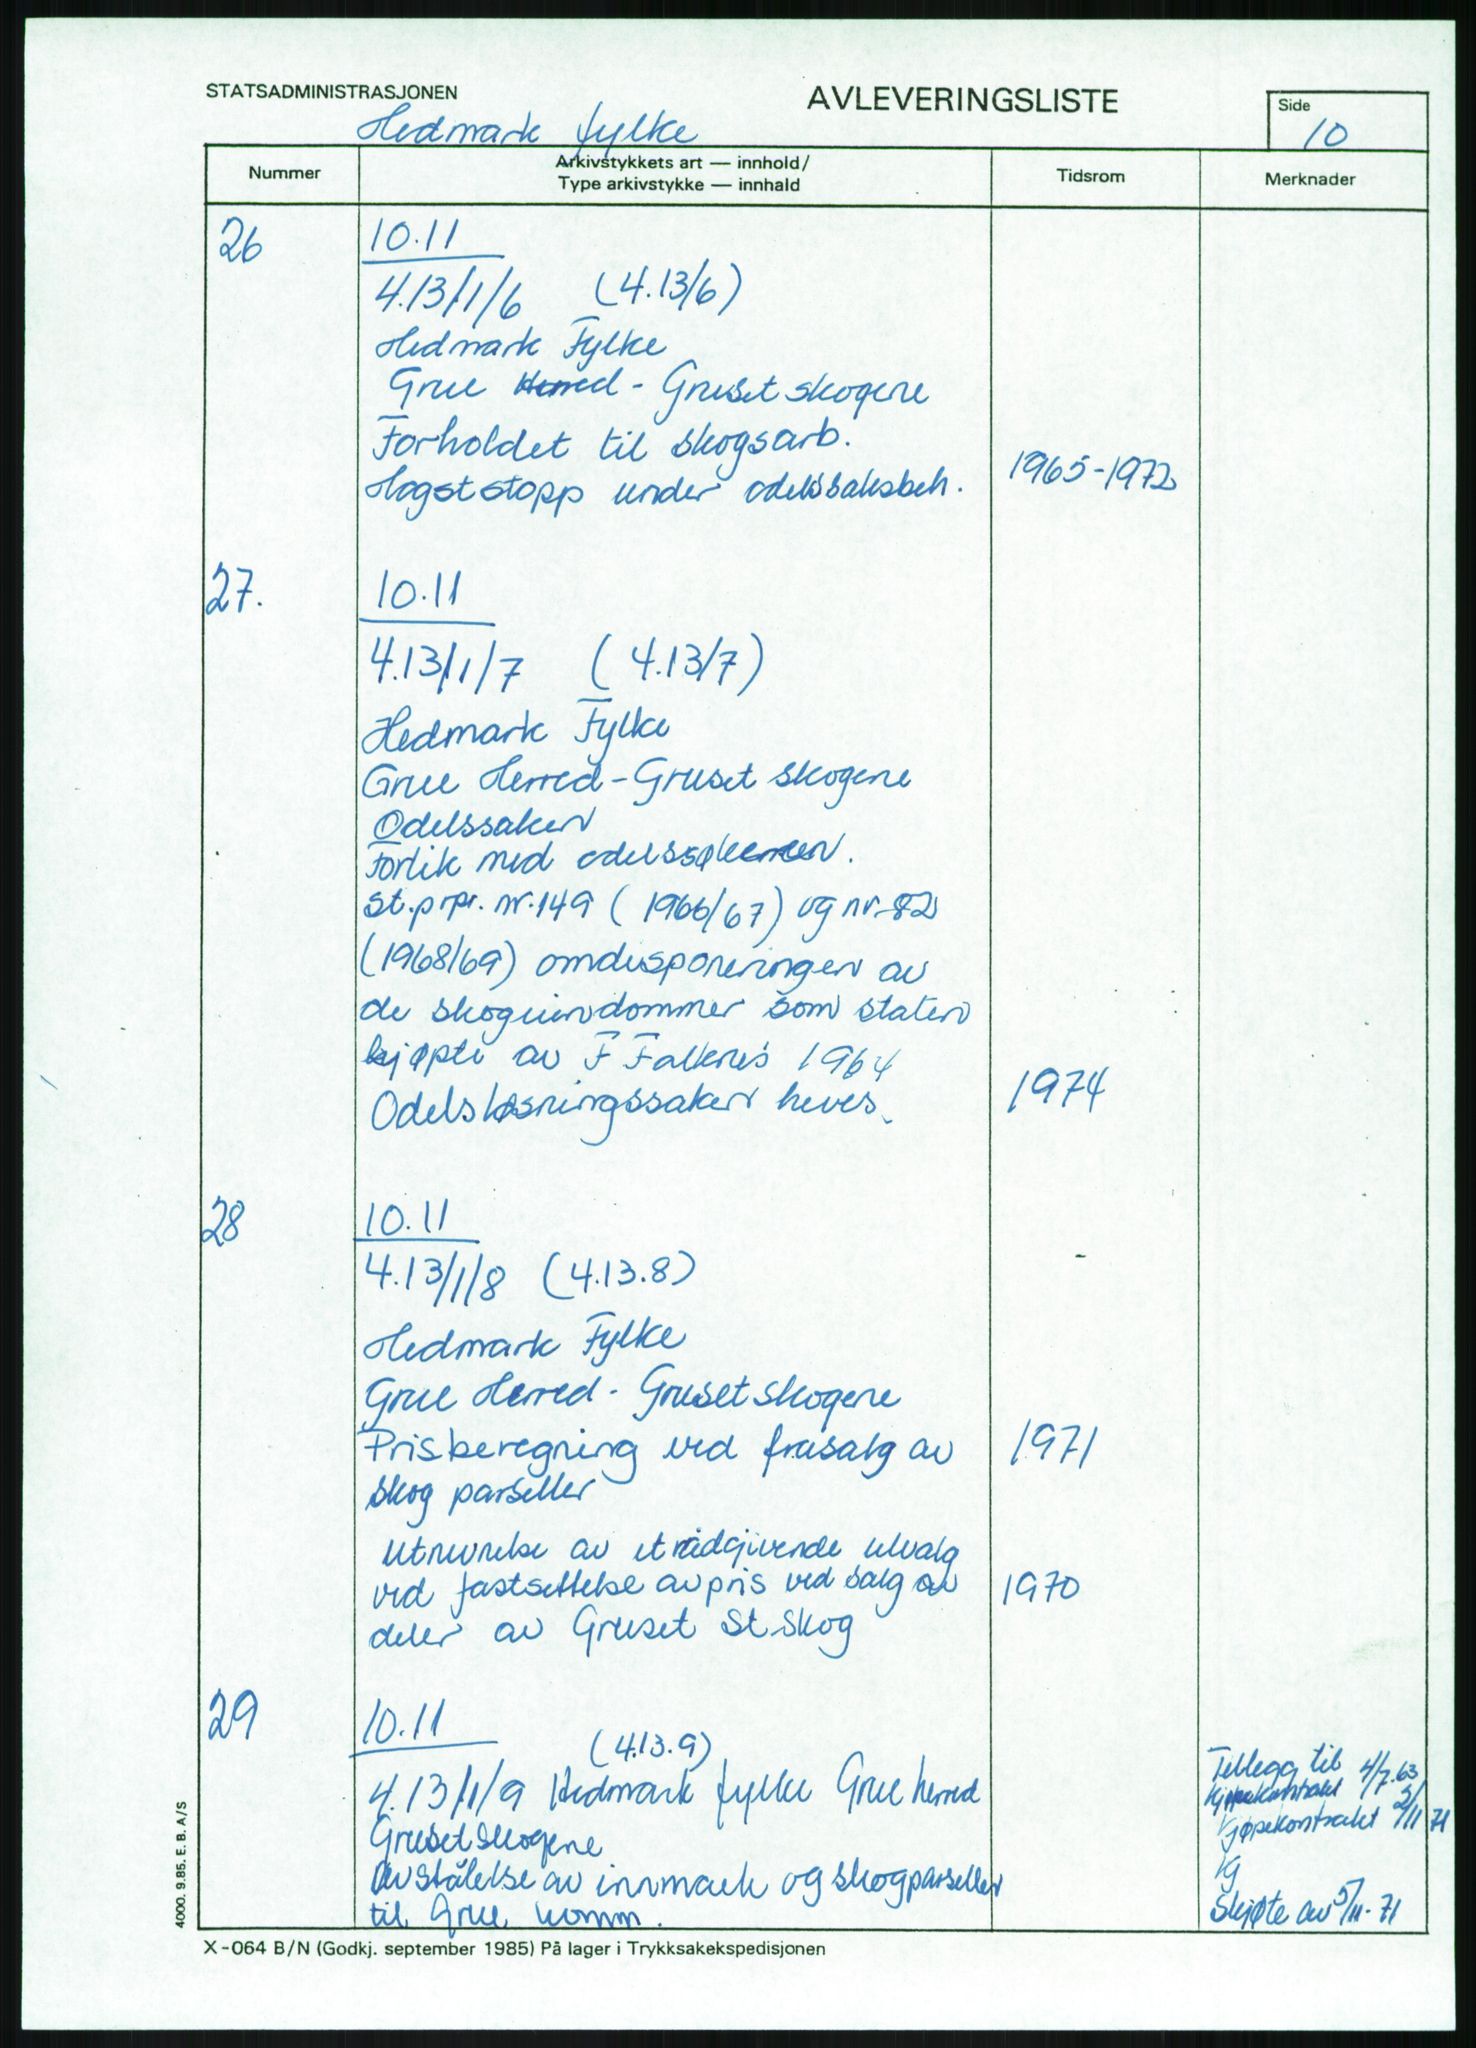 STATSADMINISTRASJONEN
AVLEVERINGSLISTE
Side
10
Hedmark fylke
Nummer
Arkivstykkets art — innhold/
Type arkivstykke — innhald
Tidsrom
Merknader
26
10.11
4.13/1/6 (4.13/6)
Hedmark Fylke
Grue Herred - Gruset skogene
Forholdet til skogsarb.
Hogststopp under odelssaksbeh. 1965-1972
27.
10.11
4.13/1/7 (4.13/7)
Hedmark Fylke
Grue Herred - Gruset skogene
Odelssaken
Forlik med odelssøkeren.
St.prpr. nr.149 (1966/67) og nr-82
(1968/69) omdisponeringen av
de skogeiendommer som staten
kjøpte av F Falkenes 1964
Odelsløsningssaken heves. 1974
28
10.11
4.13/1/8 (4.13.8)
Hedmark Fylke
Grue Herred - Gruset skogene
Prisberegning ved frasalg av 1971
skog parseller
Utnevnelse av et rådgivende utvalg
ved fastsettelse av pris ved salg av 1970
deler av Gruset St.skog
29
10.11
(4.13.9)
4.13/1/9 Hedmark fylke Grue herred
Gruset skogene
Avståelse av innmark og skogparseller
til Grue komm.
Tillegg til
kjøpekontrakt 4/7.63
kjøpekontrakt 2/11 71
og
Skjøte av 5/11-71
4000. 9.85. E. B. A/S
X-064 B/N (Godkj. september 1985) På lager i Trykksakekspedisjonen